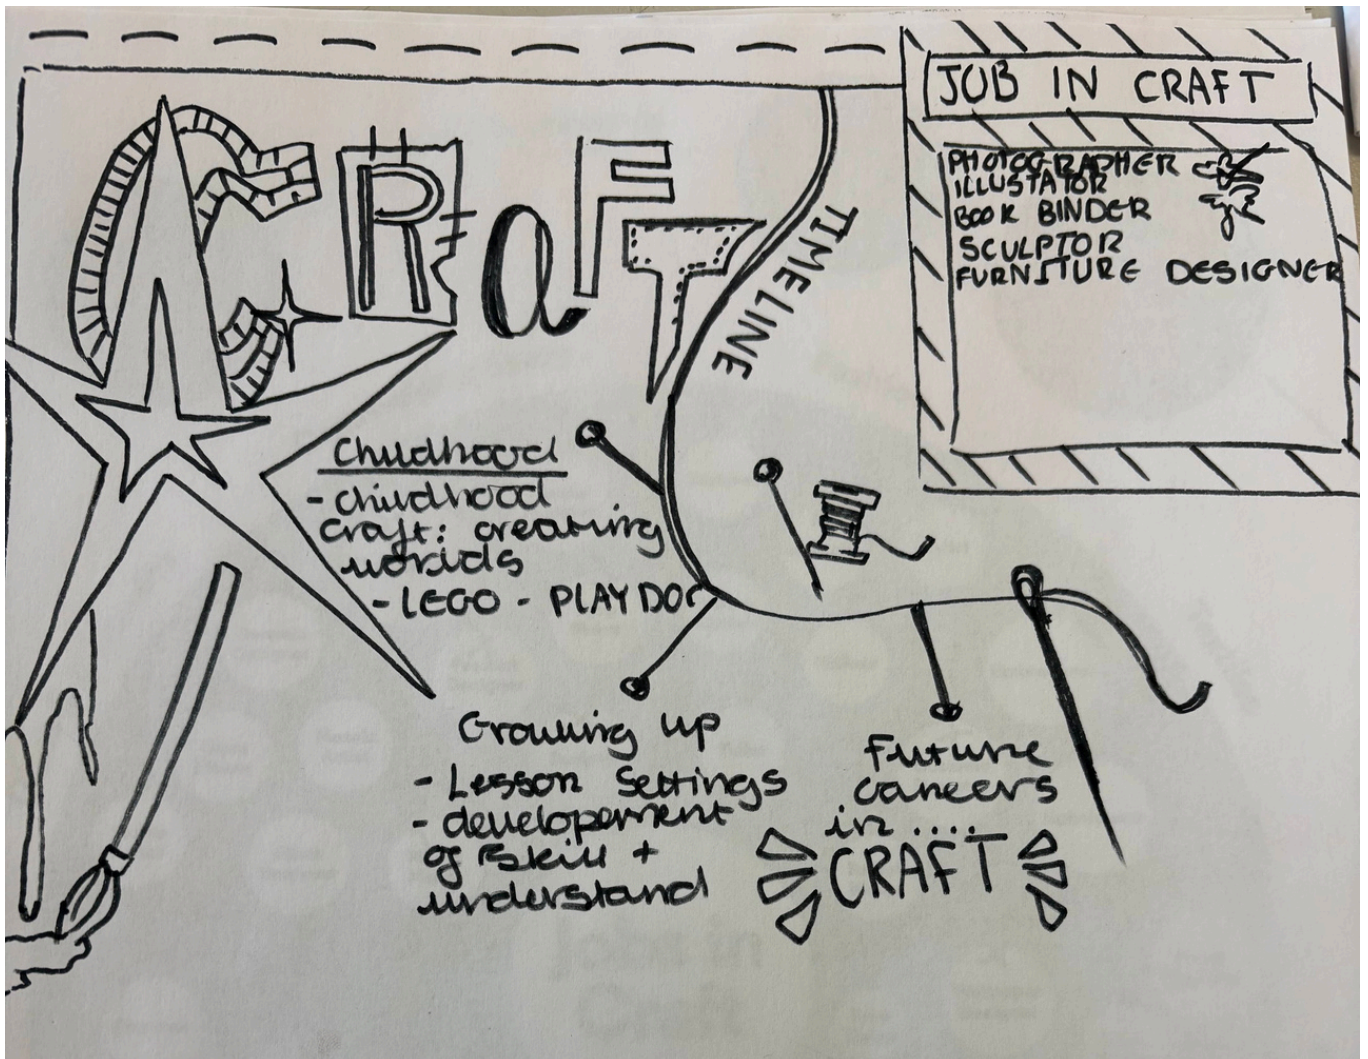 CRaFT
TIMELINE
JOB IN CRAFT
PHOTOGRAPHER
ILLUSTATOR
BOOK BINDER
SCULPTOR
FURNITURE DESIGNER
Childhood
- childhood
craft: creating
worlds
- LEGO - PLAY DO
Growing up
- Lesson Settings
- developement
of skill +
understand
Future
careers
in ....
CRAFT
Jobs in
Craft